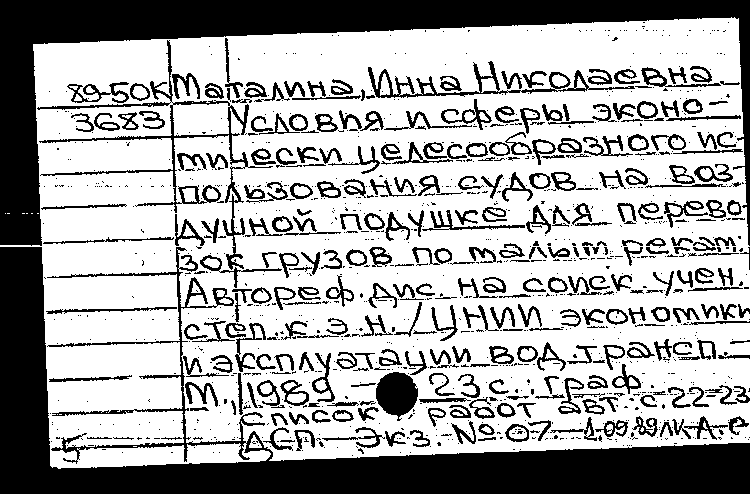 89-50К Маталина, Инна Николаевна.
3683 Условия и сферы эконо-
мически целесообразного ис-
пользования судов на воз-
душной подушке для перево-
зок грузов по малым рекам:
Автореф. дис. на соиск. учен.
степ. к. э. н. / ЦНИИ экономики
и эксплуатации вод. трансп. -
М., 1989. - 23 с.: граф.
список работ авт.: с. 22-23
5 ДСП. Экз. № 07. 1.09.89